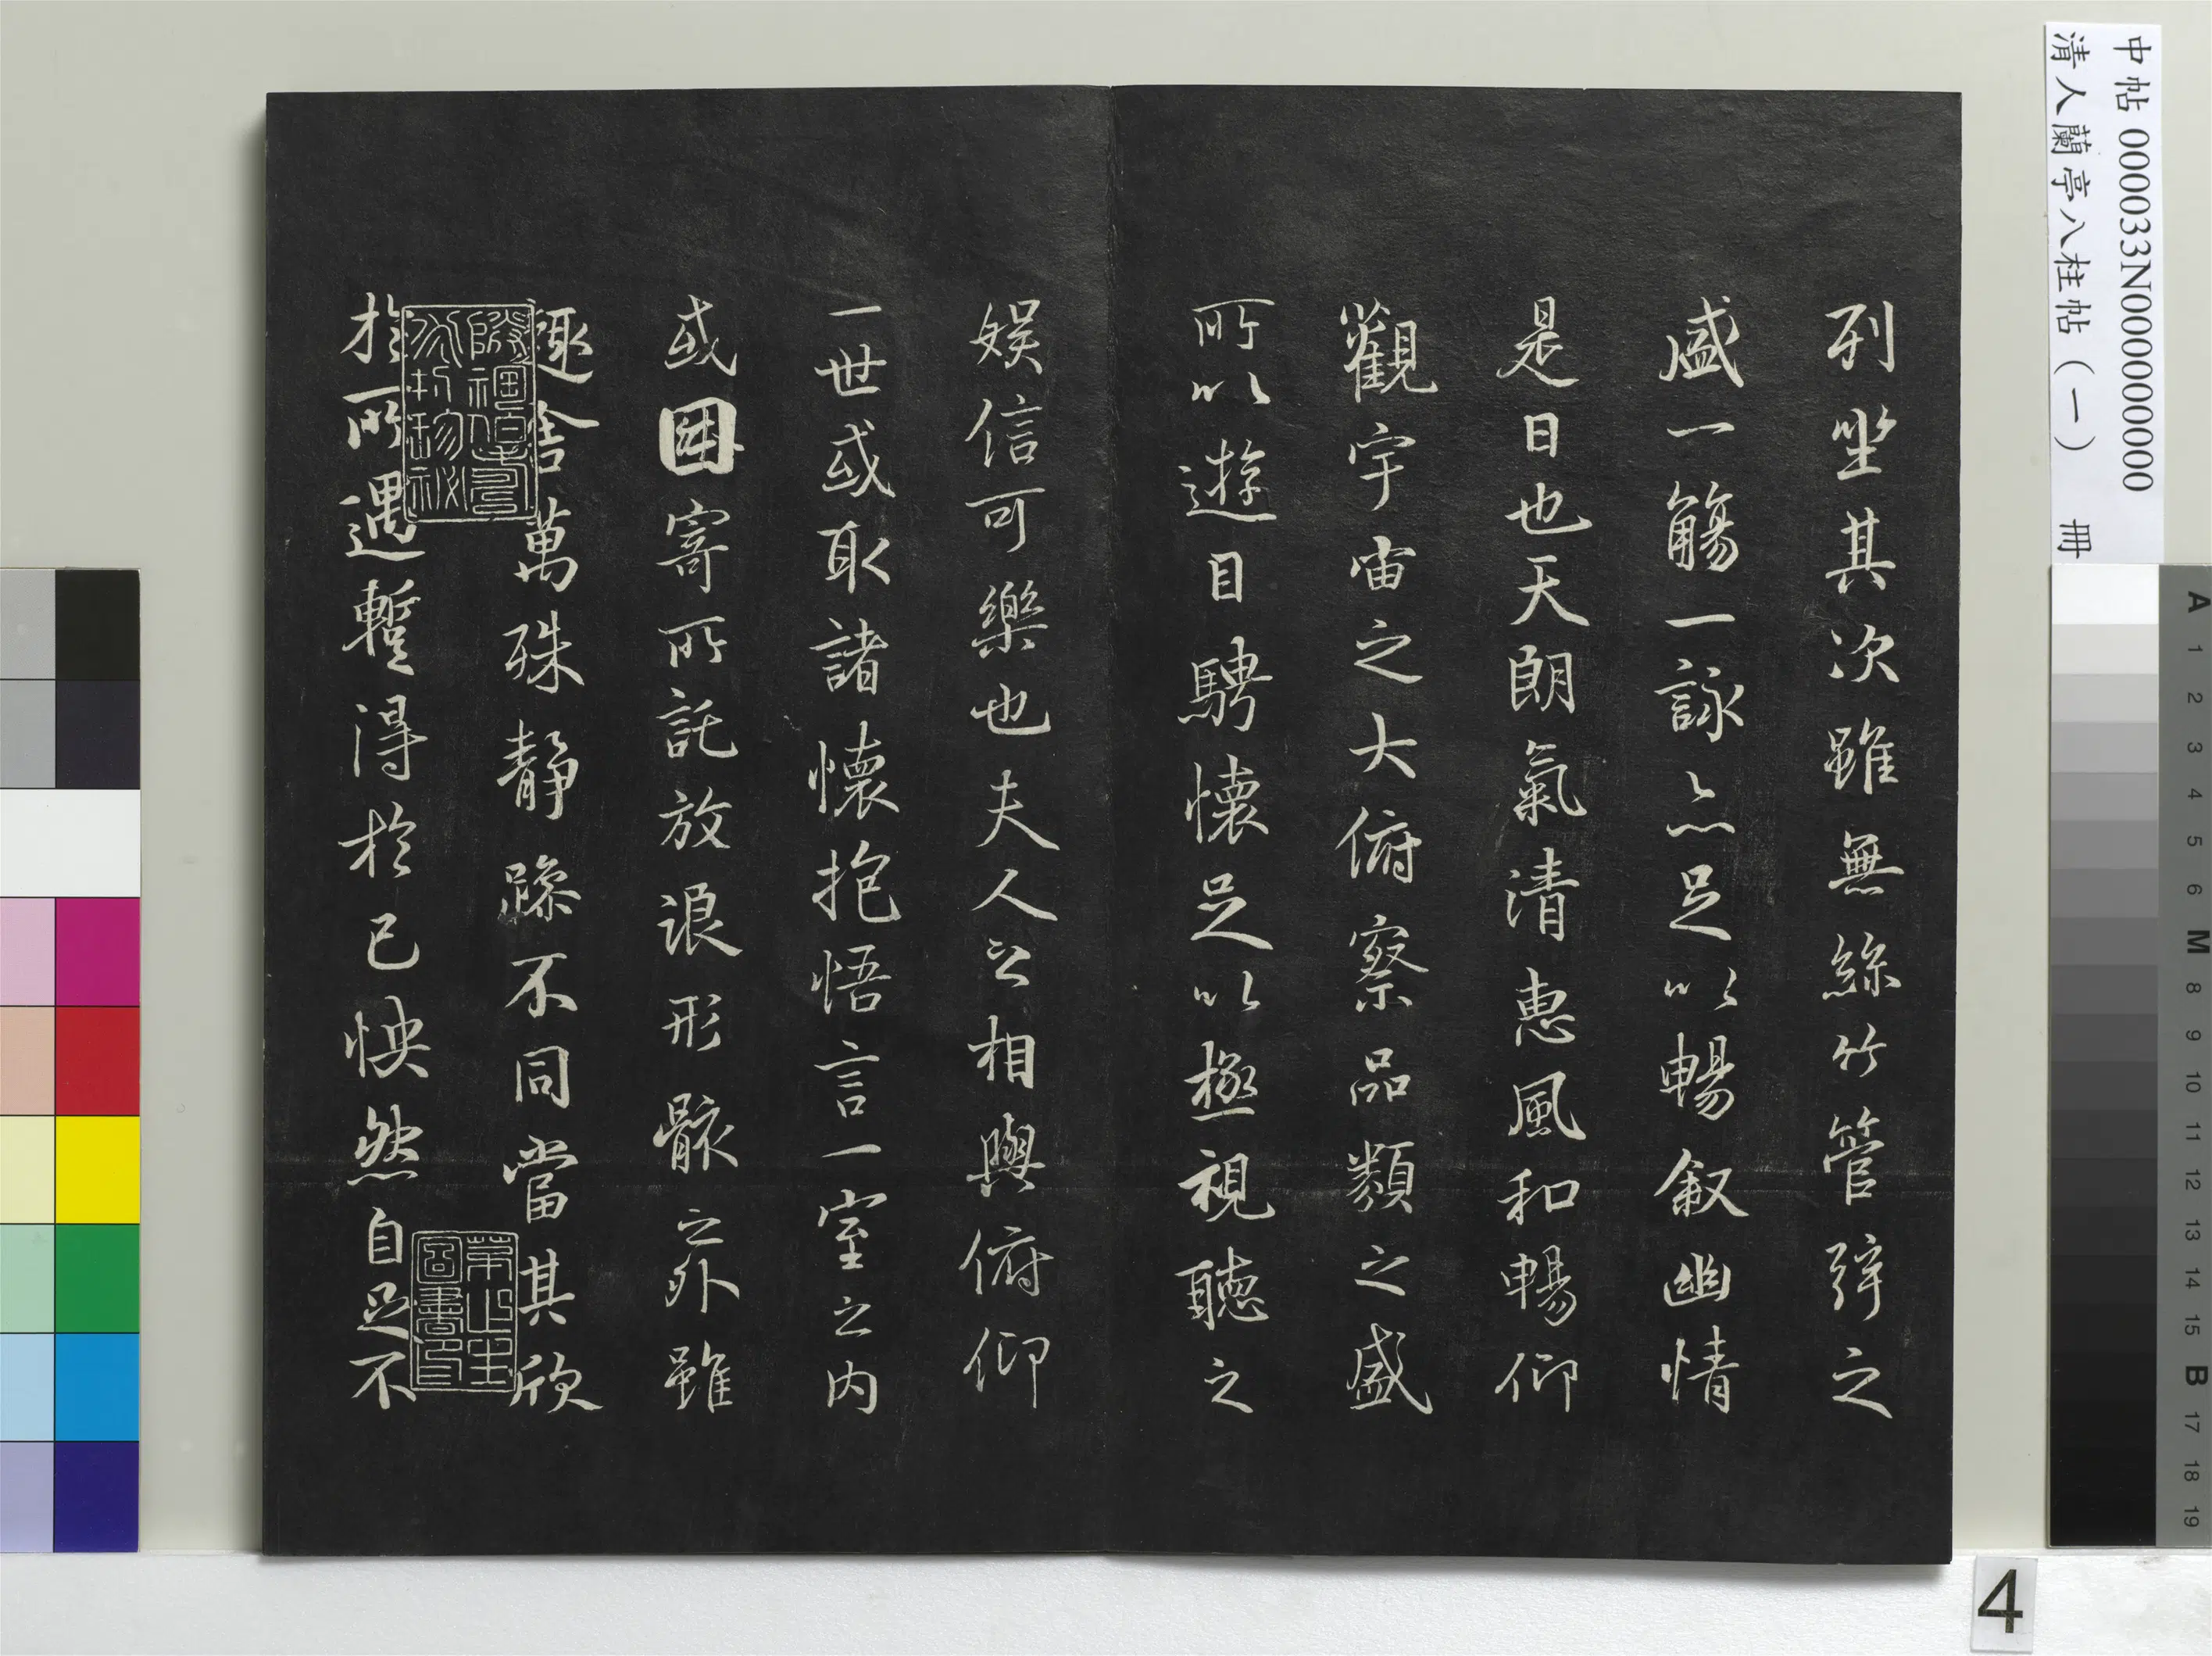 列坐其次雖無絲竹管弦之
盛一觴一詠亦足以暢叙幽情
是日也天朗氣清惠風和暢仰
觀宇宙之大俯察品類之盛
所以遊目騁懷足以極視聽之
娛信可樂也夫人之相與俯仰
一世或取諸懷抱悟言一室之內
或因寄所託放浪形骸之外雖
趣舍萬殊靜躁不同當其欣
於所遇暫得於己怏然自足不
中帖 000033N000000000
清人蘭亭八柱帖(一) 冊
A 1 2 3 4 5 6 M 8 9 10 11 12 13 14 15 B 17 18 19
4